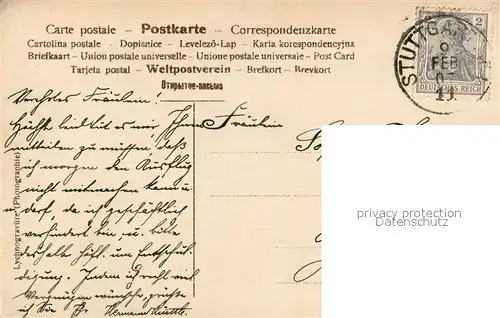 Carte postale - Postkarte - Correspondenzkarte
Cartolina postale - Dopisnice - Levelező-Lap - Karta korespondencyjna
Briefkaart - Union postale universelle - Unione postale universale - Post Card
Tarjeta postal - Weltpostverein - Brefkort - Brevkort
Открытое-письмо
STUTTGART
9
FEB
07
2
DEUTSCHES REICH
Verehrtes Fräulein!
Höchst leid tut es mir, Ihnen
mitteilen zu müssen, daß
ich morgen den Ausflug
nicht mitmachen kann u.
darf, da ich geschäftlich
verhindert bin u. bitte
deshalb höfl. um Entschul-
digung. Indem ich recht viel
Vergnügen wünsche, grüßt
Hermann
Fräulein
Lychnogravüre (Photographie)
privacy protection
Datenschutz